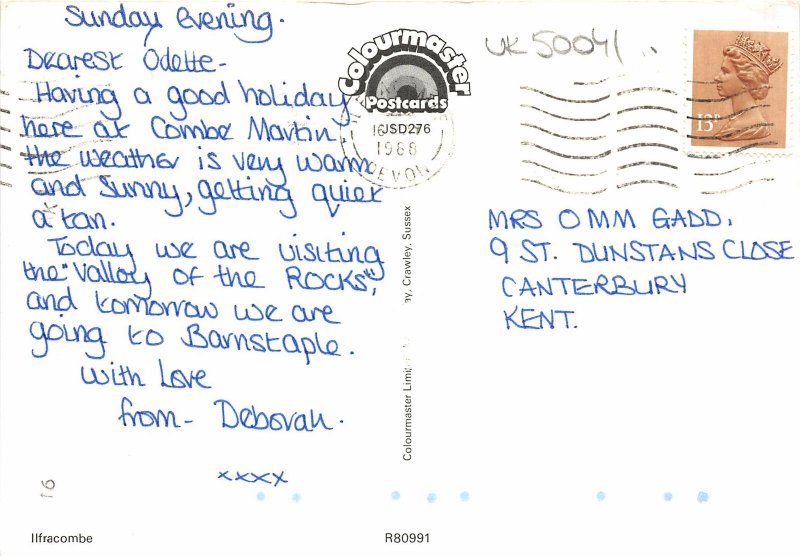 Sunday evening.
Dearest Odette-
Having a good holiday
here at Combe Martin,
the weather is very warm
and sunny, getting quiet
a tan.
Today we are visiting
the "Valley of the ROCKS",
and tomorrow we are
going to Barnstaple.
With Love
from- Deborah.
xxxx
16
Ilfracombe
Colourmaster
Postcards
JSD276
1988
DEVON
Crawley, Sussex
Colourmaster
R80991
UK 50041
13P
MRS O M M GADD,
9 ST. DUNSTANS CLOSE
CANTERBURY
KENT.